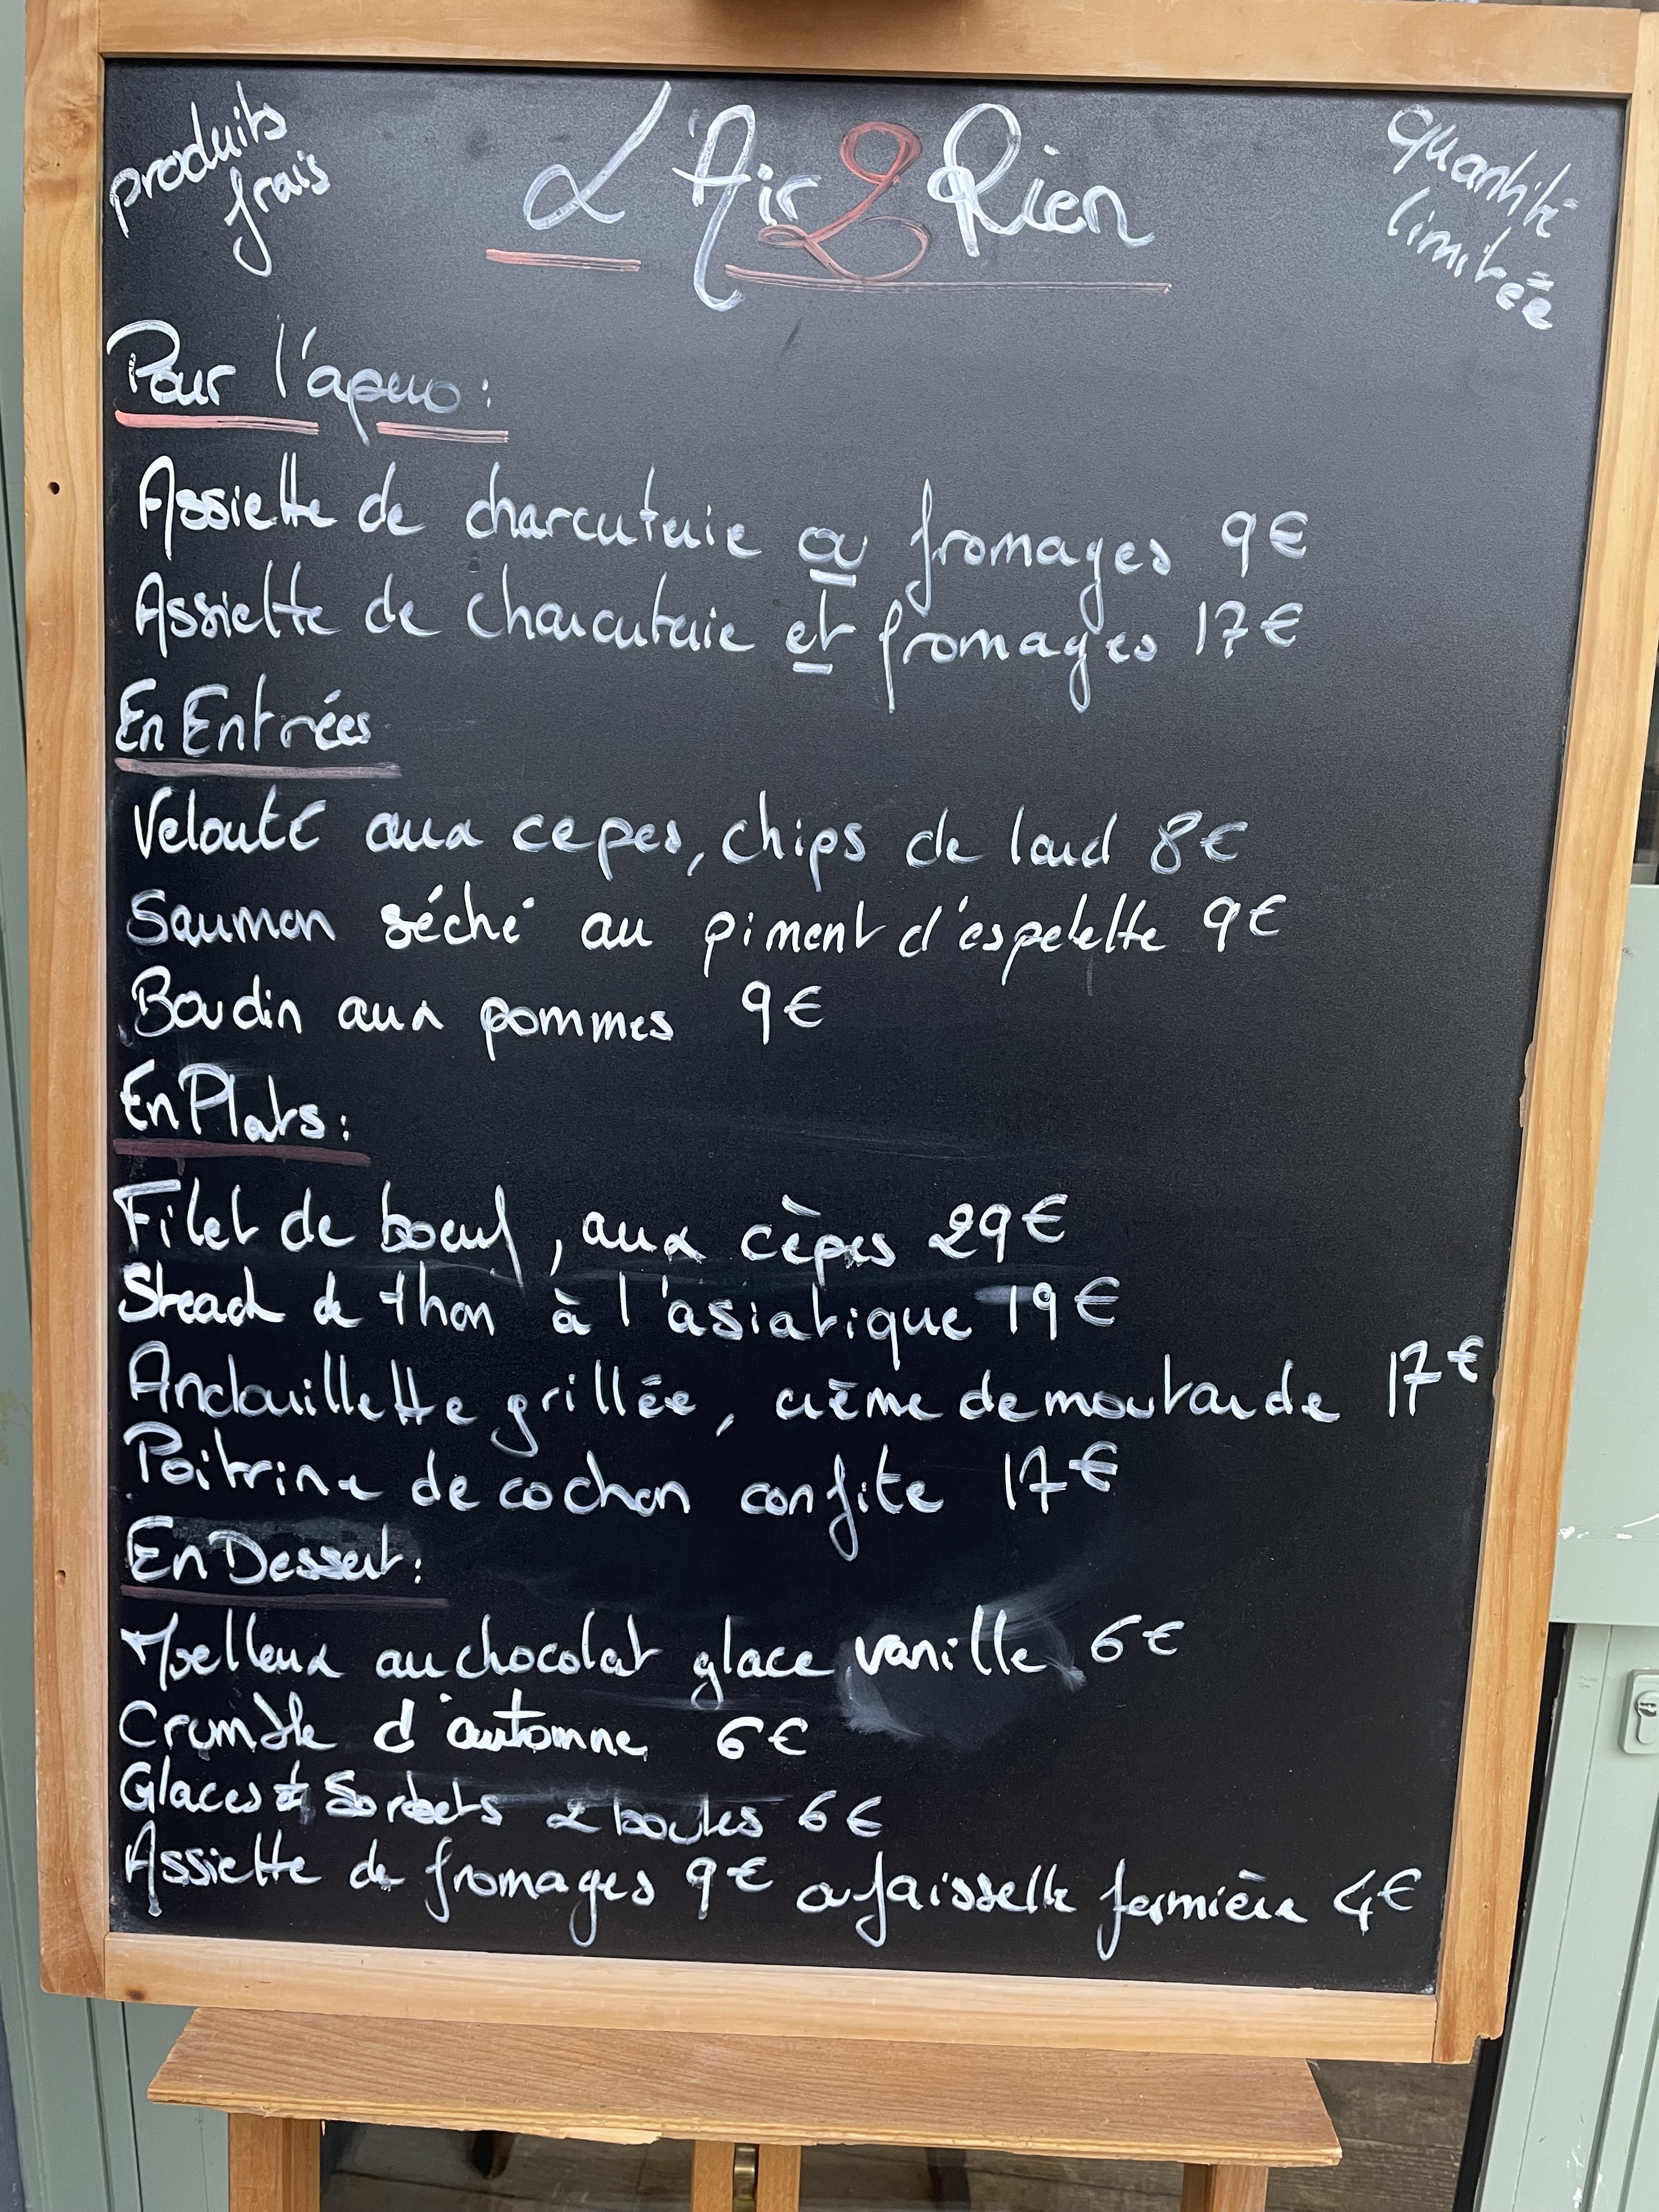 produits
frais
L'Air 2 Rien
quantité
limitée
Pour l'apero :
Assiette de charcuterie ou fromages 9€
Assiette de charcuterie et fromages 17€
En Entrées
Velouté aux cepes, chips de lard 8€
Saumon séché au piment d'espelette 9€
Boudin aux pommes 9€
En Plats :
Filet de boeuf, aux cèpes 29€
Steack de thon à l'asiatique 19€
Andouillette grillée, crème de moutarde 17€
Poitrine de cochon confite 17€
En Dessert :
Moelleux au chocolat glace vanille 6€
Crumble d'automne 6€
Glaces et Sorbets 2 boules 6€
Assiette de fromages 9€ ou faisselle fermière 4€